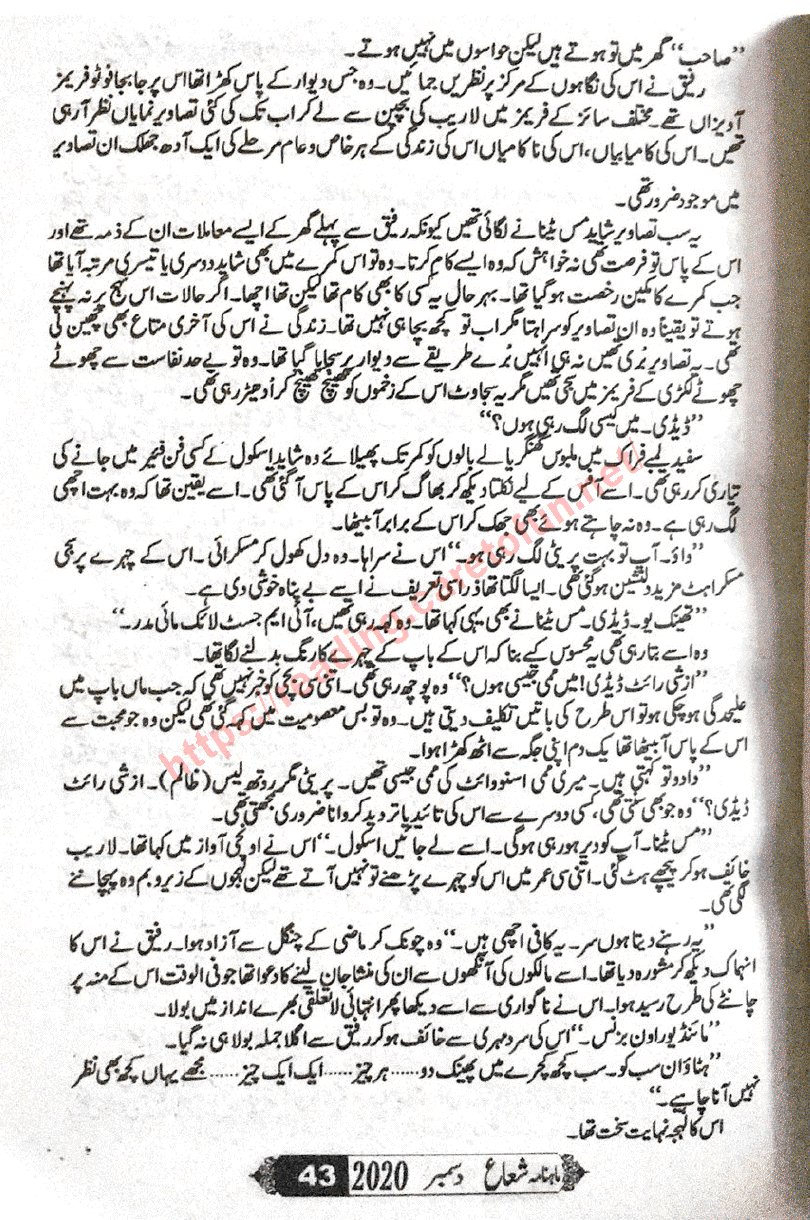 ”صاحب“ گھر میں تو ہوتے ہیں لیکن حواسوں میں نہیں ہوتے۔
رفیق نے اس کی نگاہوں کے مرکز پر نظریں جمائیں۔ وہ جس دیوار کے پاس کھڑا تھا اس پر جا بجا فوٹو فریمز
آویزاں تھے۔ مختلف سائز کے فریمز میں لاریب کی بچپن سے لے کر اب تک کی کئی تصاویر نمایاں نظر آ رہی
تھیں۔ اس کی کامیابیاں، اس کی ناکامیاں اس کی زندگی کے ہر خاص و عام مرحلے کی ایک آدھ جھلک ان تصاویر
میں موجود ضرور تھی۔
یہ سب تصاویر شاید مس ٹینا نے لگائی تھیں کیونکہ رفیق سے پہلے گھر کے ایسے معاملات ان کے ذمہ تھے اور
اس کے پاس تو فرصت تھی نہ خواہش کہ وہ ایسے کام کرتا۔ وہ تو اس کمرے میں بھی شاید دوسری یا تیسری مرتبہ آیا تھا
جب کمرے کا مکین رخصت ہو گیا تھا۔ بہر حال یہ کسی کا بھی کام تھا لیکن تھا اچھا۔ اگر حالات اس نہج پر نہ پہنچے
ہوتے تو یقیناً وہ ان تصاویر کو سراہتا مگر اب تو کچھ بچا ہی نہیں تھا۔ زندگی نے اس کی آخری متاع بھی چھین لی
تھی۔ یہ تصاویر بُری تھیں نہ ہی انہیں بُرے طریقے سے دیوار پر سجایا گیا تھا۔ وہ تو بے حد نفاست سے چھوٹے
چھوٹے لکڑی کے فریمز میں سجی تھیں مگر یہ سجاوٹ اس کے زخموں کو کھینچ کھینچ کر اُدھیڑ رہی تھی۔
”ڈیڈی۔ میں کیسی لگ رہی ہوں؟“
سفید لمبے فراک میں ملبوس گھنگریالے بالوں کو کمر تک پھیلائے وہ شاید اسکول کے کسی فن فیئر میں جانے کی
تیاری کر رہی تھی۔ اسے آفس کے لیے نکلتا دیکھ کر بھاگ کر اس کے پاس آ گئی تھی۔ اسے یقین تھا کہ وہ بہت اچھی
لگ رہی ہے۔ وہ نہ چاہتے ہوئے بھی جھک کر اس کے برابر آ بیٹھا۔
”واؤ۔ آپ تو بہت پریٹی لگ رہی ہو۔“ اس نے سراہا۔ وہ دل کھول کر مسکرائی۔ اس کے چہرے پر سجی
مسکراہٹ مزید دلنشین ہو گئی تھی۔ ایسا لگتا تھا ذرا سی تعریف نے اسے بے پناہ خوشی دی ہے۔
”تھینک یو۔ ڈیڈی۔ مس ٹینا نے بھی یہی کہا تھا۔ وہ کہہ رہی تھیں، آئی ایم جسٹ لائک مائی مدر۔“
وہ اسے بتا رہی تھی یہ محسوس کیے بنا کہ اس کے باپ کے چہرے کا رنگ بدلنے لگا تھا۔
”از شی رائٹ ڈیڈی! میں ممی جیسی ہوں؟“ وہ پوچھ رہی تھی۔ اتنی سی بچی کو خبر نہیں تھی کہ جب ماں باپ میں
علیحدگی ہو چکی ہو تو اس طرح کی باتیں تکلیف دیتی ہیں۔ وہ تو بس معصومیت میں کہہ گئی تھی لیکن وہ جو محبت سے
اس کے پاس آ بیٹھا تھا یک دم اپنی جگہ سے اٹھ کھڑا ہوا۔
”دادو تو کہتی ہیں۔ میری ممی اسنو وائٹ کی ممی جیسی تھیں۔ پریٹی مگر روتھ لیس (ظالم)۔ از شی رائٹ
ڈیڈی؟“ وہ جو بھی سنتی تھی، کسی دوسرے سے اس کی تائید یا تردید کروانا ضروری سمجھتی تھی۔
”مس ٹینا۔ آپ کو دیر ہو رہی ہوگی۔ اسے لے جائیں اسکول۔“ اس نے اونچی آواز میں کہا تھا۔ لاریب
خائف ہو کر پیچھے ہٹ گئی۔ اتنی سی عمر میں اس کو چہرے پڑھنے تو نہیں آتے تھے لیکن لہجوں کے زیر و بم وہ پہچاننے
لگی تھی۔
”یہ رہنے دیتا ہوں سر۔ یہ کافی اچھی ہیں۔“ وہ چونک کر ماضی کے چنگل سے آزاد ہوا۔ رفیق نے اس کا
انہماک دیکھ کر مشورہ دیا تھا۔ اسے مالکوں کی آنکھوں سے ان کی منشا جان لینے کا دعوا تھا جو فی الوقت اس کے منہ پر
چانٹے کی طرح رسید ہوا۔ اس نے ناگواری سے اسے دیکھا پھر انتہائی لاتعلقی بھرے انداز میں بولا۔
”مائنڈ یور اون بزنس۔“ اس کی سرد مہری سے خائف ہو کر رفیق سے اگلا جملہ بولا ہی نہ گیا۔
”ہٹاؤ ان سب کو۔ سب کچھ کچرے میں پھینک دو...... ہر چیز...... ایک ایک چیز...... مجھے یہاں کچھ بھی نظر
نہیں آنا چاہیے۔“
اس کا لہجہ نہایت سخت تھا۔
ماہنامہ شعاع دسمبر 2020 43
https://reading.caretofun.net/